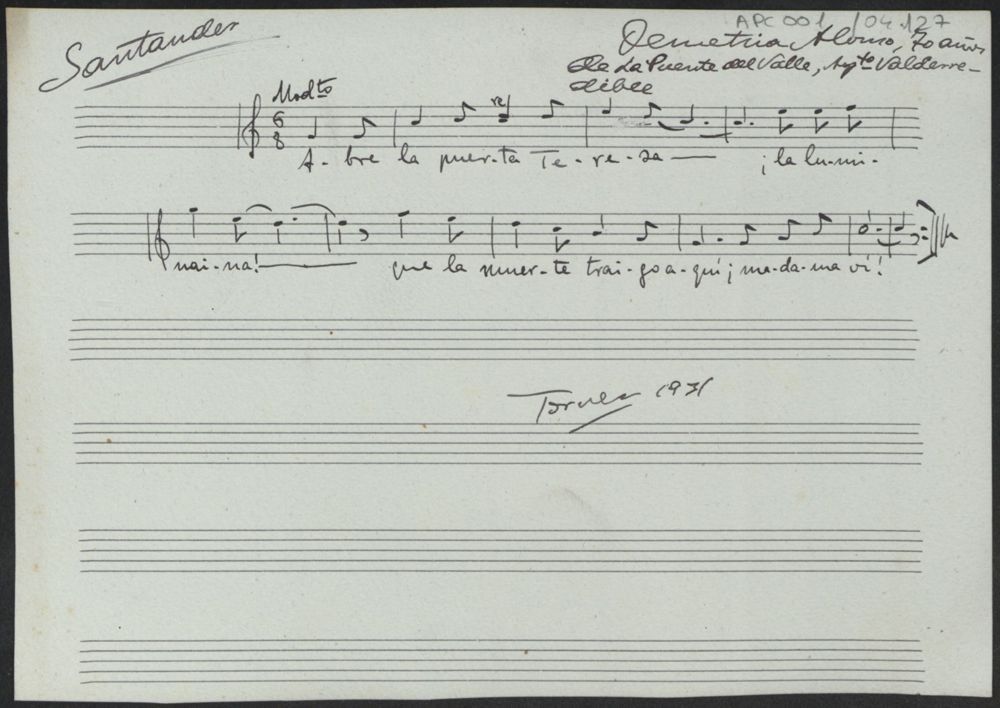 APC 001 /04.127
Santander
Demetria Alonso, 70 años
de La Puente del Valle, Ayto Valderre-
dible
Modto
6
8
re
A-bre la puer-ta Te-re-sa ¡la lu-mi-
nai-na! que la muer-te trai-go a-quí ¡ma-da-ma vi!
Torner 1931